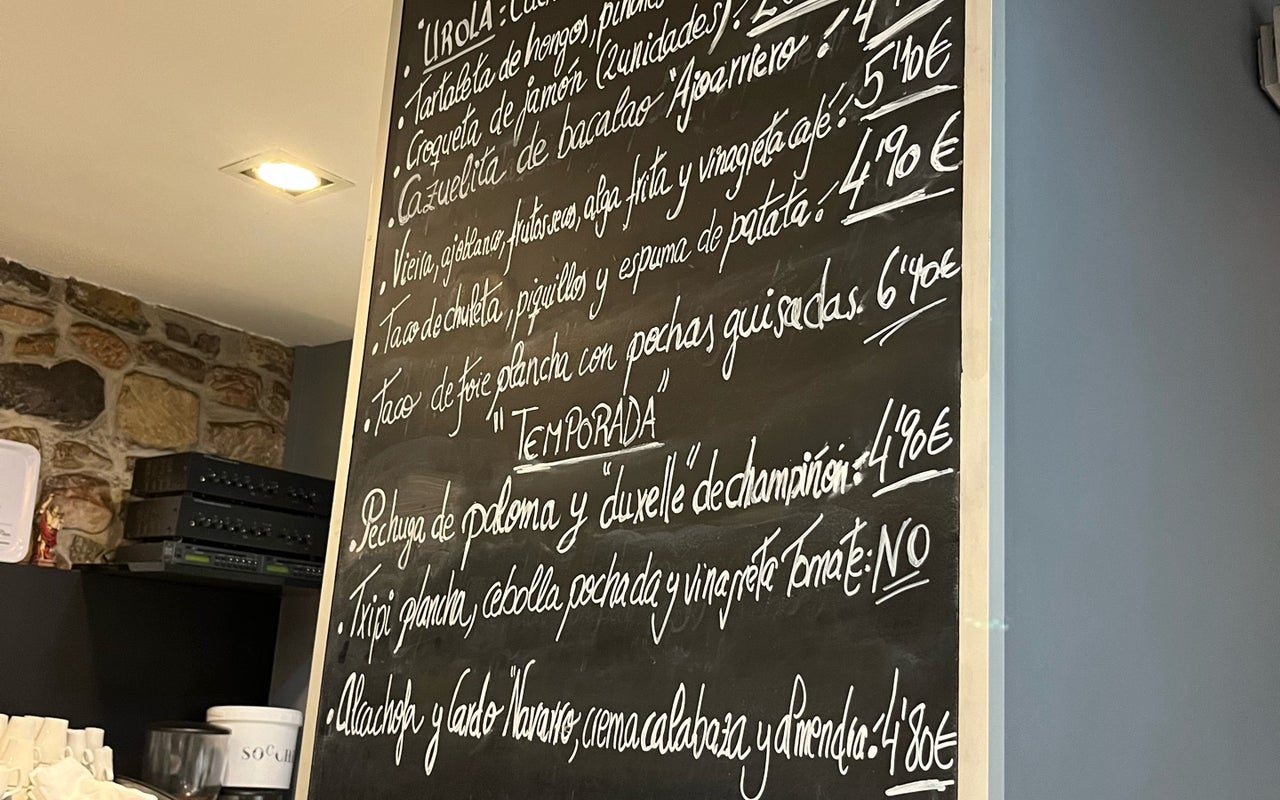 "UROLA:
· Tartaleta de hongos,
· Croqueta de jamón (2unidades):
· Cazuelita de bacalao "Ajoarriero":
· Vieira, ajoblanco, frutos secos, alga frita y vinagreta café: 5'10€
· Taco de chuleta, piquillos y espuma de patata: 4'90€
· Taco de foie plancha con pochas guisadas. 6'40€
"TEMPORADA"
· Pechuga de paloma y "duxelle" de champiñón: 4'90€
· Txipi plancha, cebolla pochada y vinagreta Tomate: NO
· Alcachofa y Cardo "Navarro, crema calabaza y almendra: 4'80€